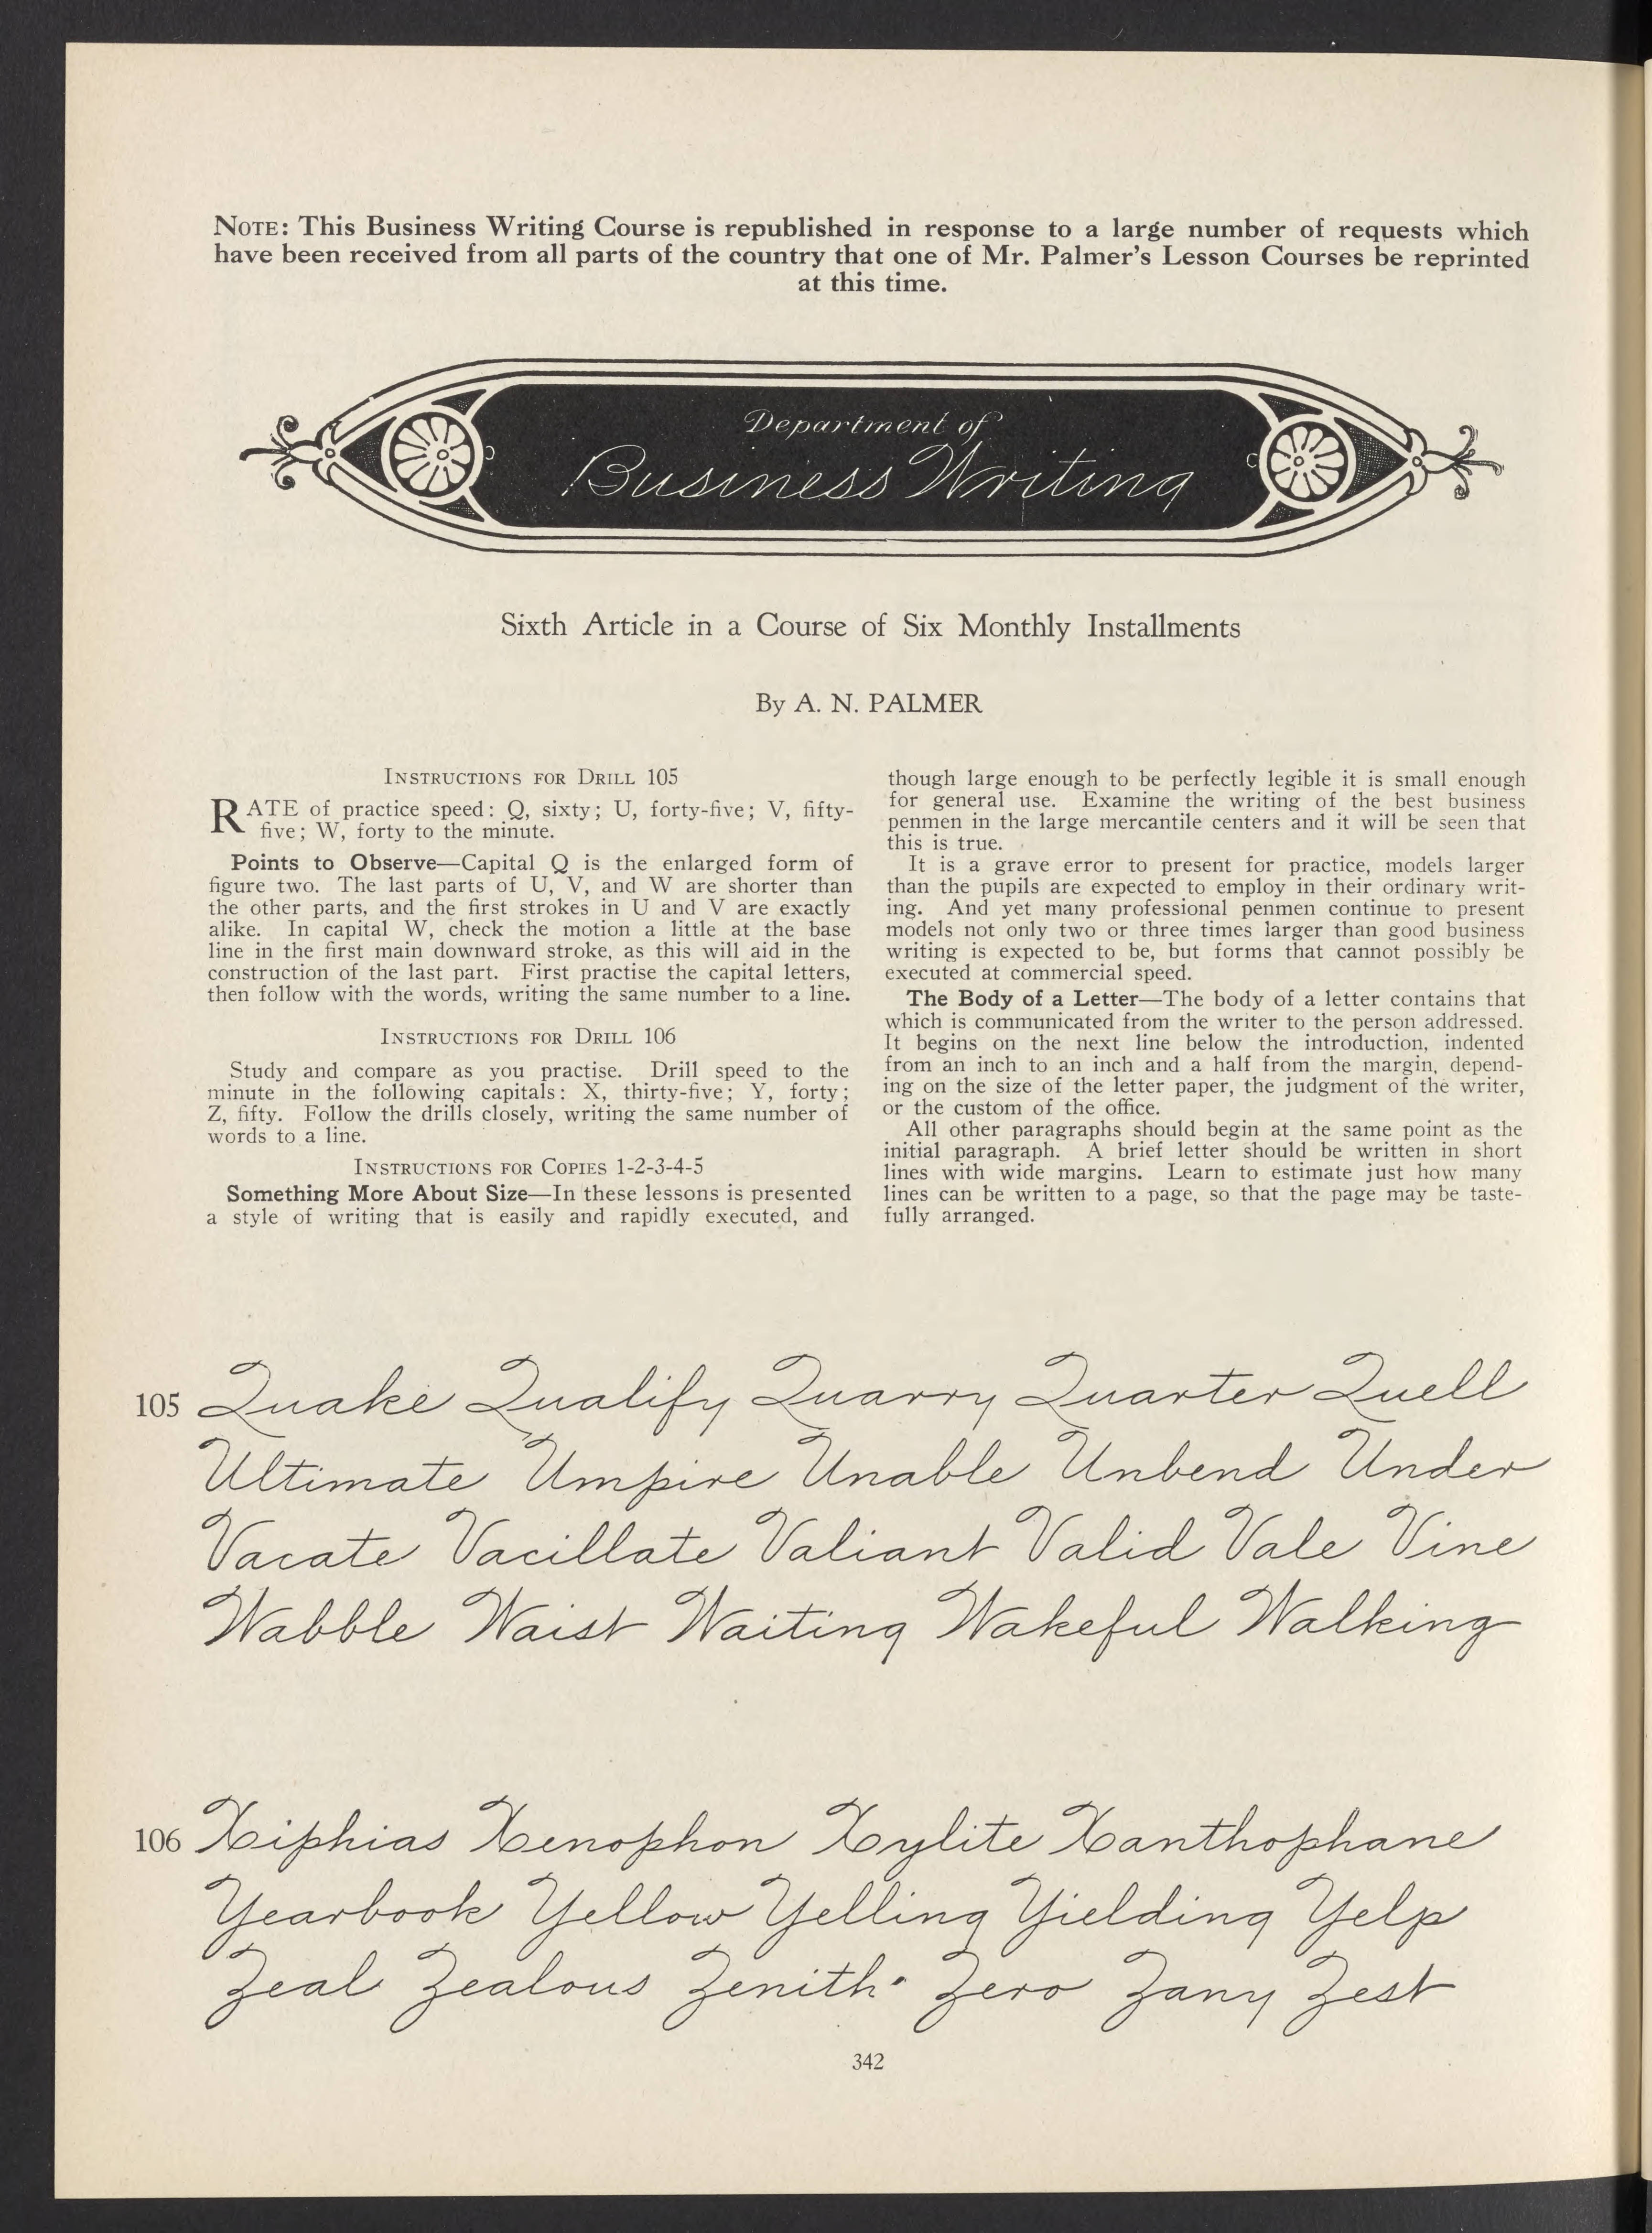 NOTE: This Business Writing Course is republished in response to a large number of requests which
have been received from all parts of the country that one of Mr. Palmer's Lesson Courses be reprinted
at this time.
Department of
Business Writing
Sixth Article in a Course of Six Monthly Installments
By A. N. PALMER
INSTRUCTIONS FOR DRILL 105
RATE of practice speed: Q, sixty; U, forty-five; V, fifty-
five; W, forty to the minute.
Points to Observe—Capital Q is the enlarged form of
figure two. The last parts of U, V, and W are shorter than
the other parts, and the first strokes in U and V are exactly
alike. In capital W, check the motion a little at the base
line in the first main downward stroke, as this will aid in the
construction of the last part. First practise the capital letters,
then follow with the words, writing the same number to a line.
INSTRUCTIONS FOR DRILL 106
Study and compare as you practise. Drill speed to the
minute in the following capitals: X, thirty-five; Y, forty;
Z, fifty. Follow the drills closely, writing the same number of
words to a line.
INSTRUCTIONS FOR COPIES 1-2-3-4-5
Something More About Size—In these lessons is presented
a style of writing that is easily and rapidly executed, and
though large enough to be perfectly legible it is small enough
for general use. Examine the writing of the best business
penmen in the large mercantile centers and it will be seen that
this is true.
It is a grave error to present for practice, models larger
than the pupils are expected to employ in their ordinary writ-
ing. And yet many professional penmen continue to present
models not only two or three times larger than good business
writing is expected to be, but forms that cannot possibly be
executed at commercial speed.
The Body of a Letter—The body of a letter contains that
which is communicated from the writer to the person addressed.
It begins on the next line below the introduction, indented
from an inch to an inch and a half from the margin, depend-
ing on the size of the letter paper, the judgment of the writer,
or the custom of the office.
All other paragraphs should begin at the same point as the
initial paragraph. A brief letter should be written in short
lines with wide margins. Learn to estimate just how many
lines can be written to a page, so that the page may be taste-
fully arranged.
105 Quake Qualify Quarry Quarter Quell
Ultimate Umpire Unable Unbend Under
Vacate Vacillate Valiant Valid Vale Vine
Wabble Waist Waiting Wakeful Walking
106 Xiphias Xenophon Xylite Xanthophane
Yearbook Yellow Yelling Yielding Yelp
Zeal Zealous Zenith Zero Zany Zest
342